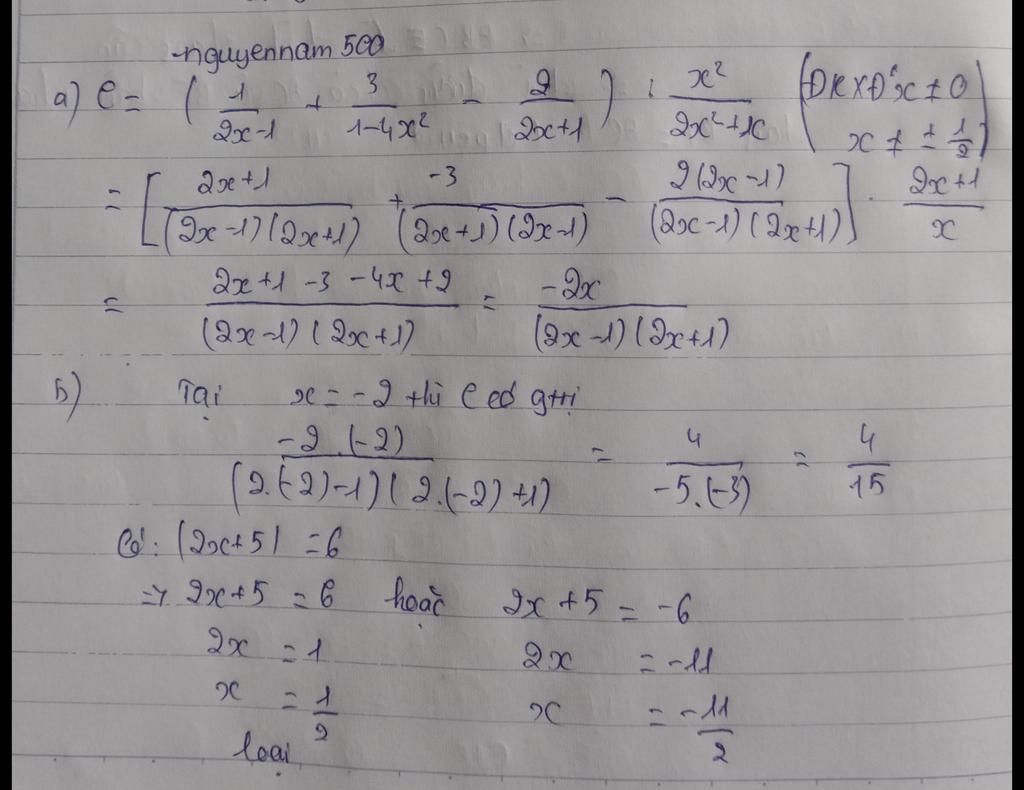 nguyennam 500
a) C = ( 1/(2x-1) + 3/(1-4x²) - 2/(2x+1) ) : x²/(2x²+x) (ĐKXĐ x ≠ 0
x ≠ ± 1/2)
= [ (2x+1)/((2x-1)(2x+1)) + -3/((2x+1)(2x-1)) - 2(2x-1)/((2x-1)(2x+1)) ] . (2x+1)/x
= (2x+1-3-4x+2)/((2x-1)(2x+1)) = -2x/((2x-1)(2x+1))
b) Tại x = -2 thì C có gtrị
-2.(-2)/((2.(-2)-1)(2.(-2)+1)) = 4/(-5.(-3)) = 4/15
Có: |2x+5| = 6
=> 2x+5 = 6 hoặc 2x+5 = -6
2x = 1 2x = -11
x = 1/2 x = -11/2
loại